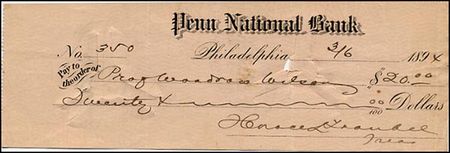 Penn National Bank
No. 350 Philadelphia 3/6 1894
Pay to the order of Prof Woodrow Wilson $20.00
Twenty & 00/100 Dollars
Horace L Traubel
Treas